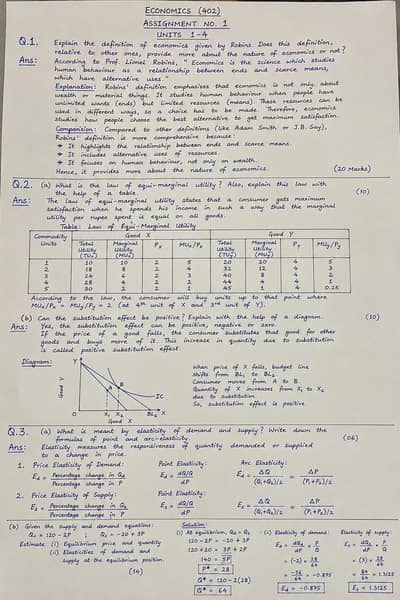 ECONOMICS (402)
ASSIGNMENT NO. 1
UNITS 1-4
Q.1. Explain the definition of economics given by Robins. Does this definition,
relative to other ones, provide more about the nature of economics or not?
Ans: According to Prof. Lionel Robins, "Economics is the science which studies
human behaviour as a relationship between ends and scarce means,
which have alternative uses."
Explanation: Robins' definition emphasizes that economics is not only about
wealth or material things. It studies human behaviour when people have
unlimited wants (ends) but limited resources (means). These resources can be
used in different ways, so a choice has to be made. Therefore, economics
studies how people choose the best alternative to get maximum satisfaction.
Comparision: Compared to other definitions (like Adam Smith or J.B. Say),
Robins' definition is more comprehensive because:
→ It highlights the relationship between ends and scarce means.
→ It includes alternative uses of resources.
→ It focuses on human behaviour, not only on wealth.
Hence, it provides more about the nature of economics. (20 Marks)
Q.2. (a) What is the law of equi-marginal utility? Also, explain this law with
the help of a table. (10)
Ans: The law of equi-marginal utility states that a consumer gets maximum
satisfaction when he spends his income in such a way that the marginal
utility per rupee spent is equal on all goods.
Table: Law of Equi-Marginal Utility
Commodity Units Good X Good Y
Total Utility Marginal Utility Px MUx/Px Total Utility Marginal Utility PY MUy/Py
1 10 10 2 5 20 20 4 5
2 18 8 2 4 32 12 4 3
3 24 6 2 3 40 8 4 2
4 28 4 2 2 44 4 4 1
5 30 2 2 1 45 1 4 0.25
According to the law, the consumer will buy units up to that point where
MUx/Px = MUy/Py = 2 (at 4th unit of X and 3rd unit of Y).
(b) Can the substitution effect be positive? Explain with the help of a diagram. (10)
Ans: Yes, the substitution effect can be positive, negative or zero.
If the price of a good falls, the consumer substitutes that good for other
goods and buys more of it. This increase in quantity due to substitution
is called positive substitution effect.
Diagram:
Y
Good Y
A
B
IC
O X1 X2 BL2 X
Good X
When price of X falls, budget line
shifts from BL1 to BL2.
Consumer moves from A to B.
Quantity of X increases from X1 to X2
due to substitution.
So, substitution effect is positive.
Q.3. (a) What is meant by elasticity of demand and supply? Write down the
formulas of point and arc-elasticity. (06)
Ans: Elasticity measures the responsiveness of quantity demanded or supplied
to a change in price.
1. Price Elasticity of Demand: Point Elasticity: Arc Elasticity:
Ed = Percentage change in Qd / Percentage change in P
2. Price Elasticity of Supply: Point Elasticity:
Es = Percentage change in Qs / Percentage change in P
(b) Given the supply and demand equations:
Qd = 120 - 2P ; Qs = -20 + 3P
Estimate (i) Equilibrium price and quantity
(ii) Elasticities of demand and
supply at the equilibrium position.
(14)
Solution:
(i) At equilibrium, Qd = Qs
120 - 2P = -20 + 3P
120 + 20 = 3P + 2P
140 = 5P
P* = 28
Q* = 120 - 2(28)
Q* = 64
(i) Elasticity of demand:
Ed = -0.895
Elasticity of supply:
Es = 1.3125